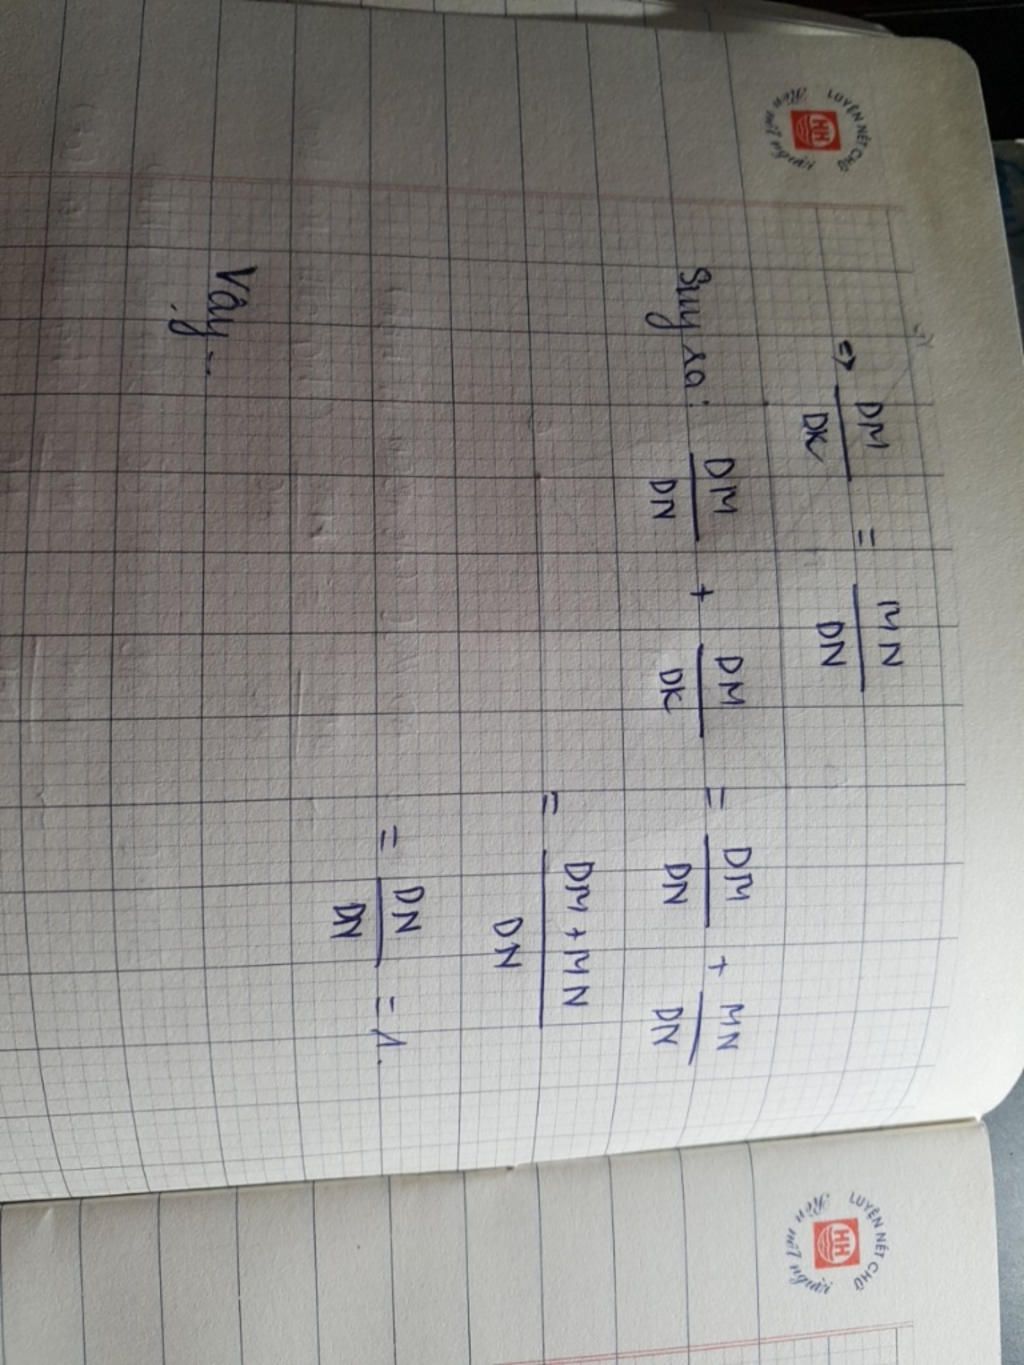 LUYỆN NÉT CHỮ
HH
Rèn nết người
=> DM/DK = MN/DN
Suy ra: DM/DN + DM/DK = DM/DN + MN/DN
= DM + MN/DN
= DN/DN = 1.
Vậy...
LUYỆN NÉT CHỮ
HH
Rèn nết người